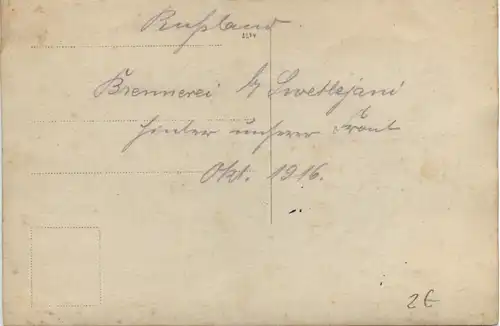 Rußland
Brennerei b/ Swetlejani
hinter unserer Front
Okt. 1916.
2€